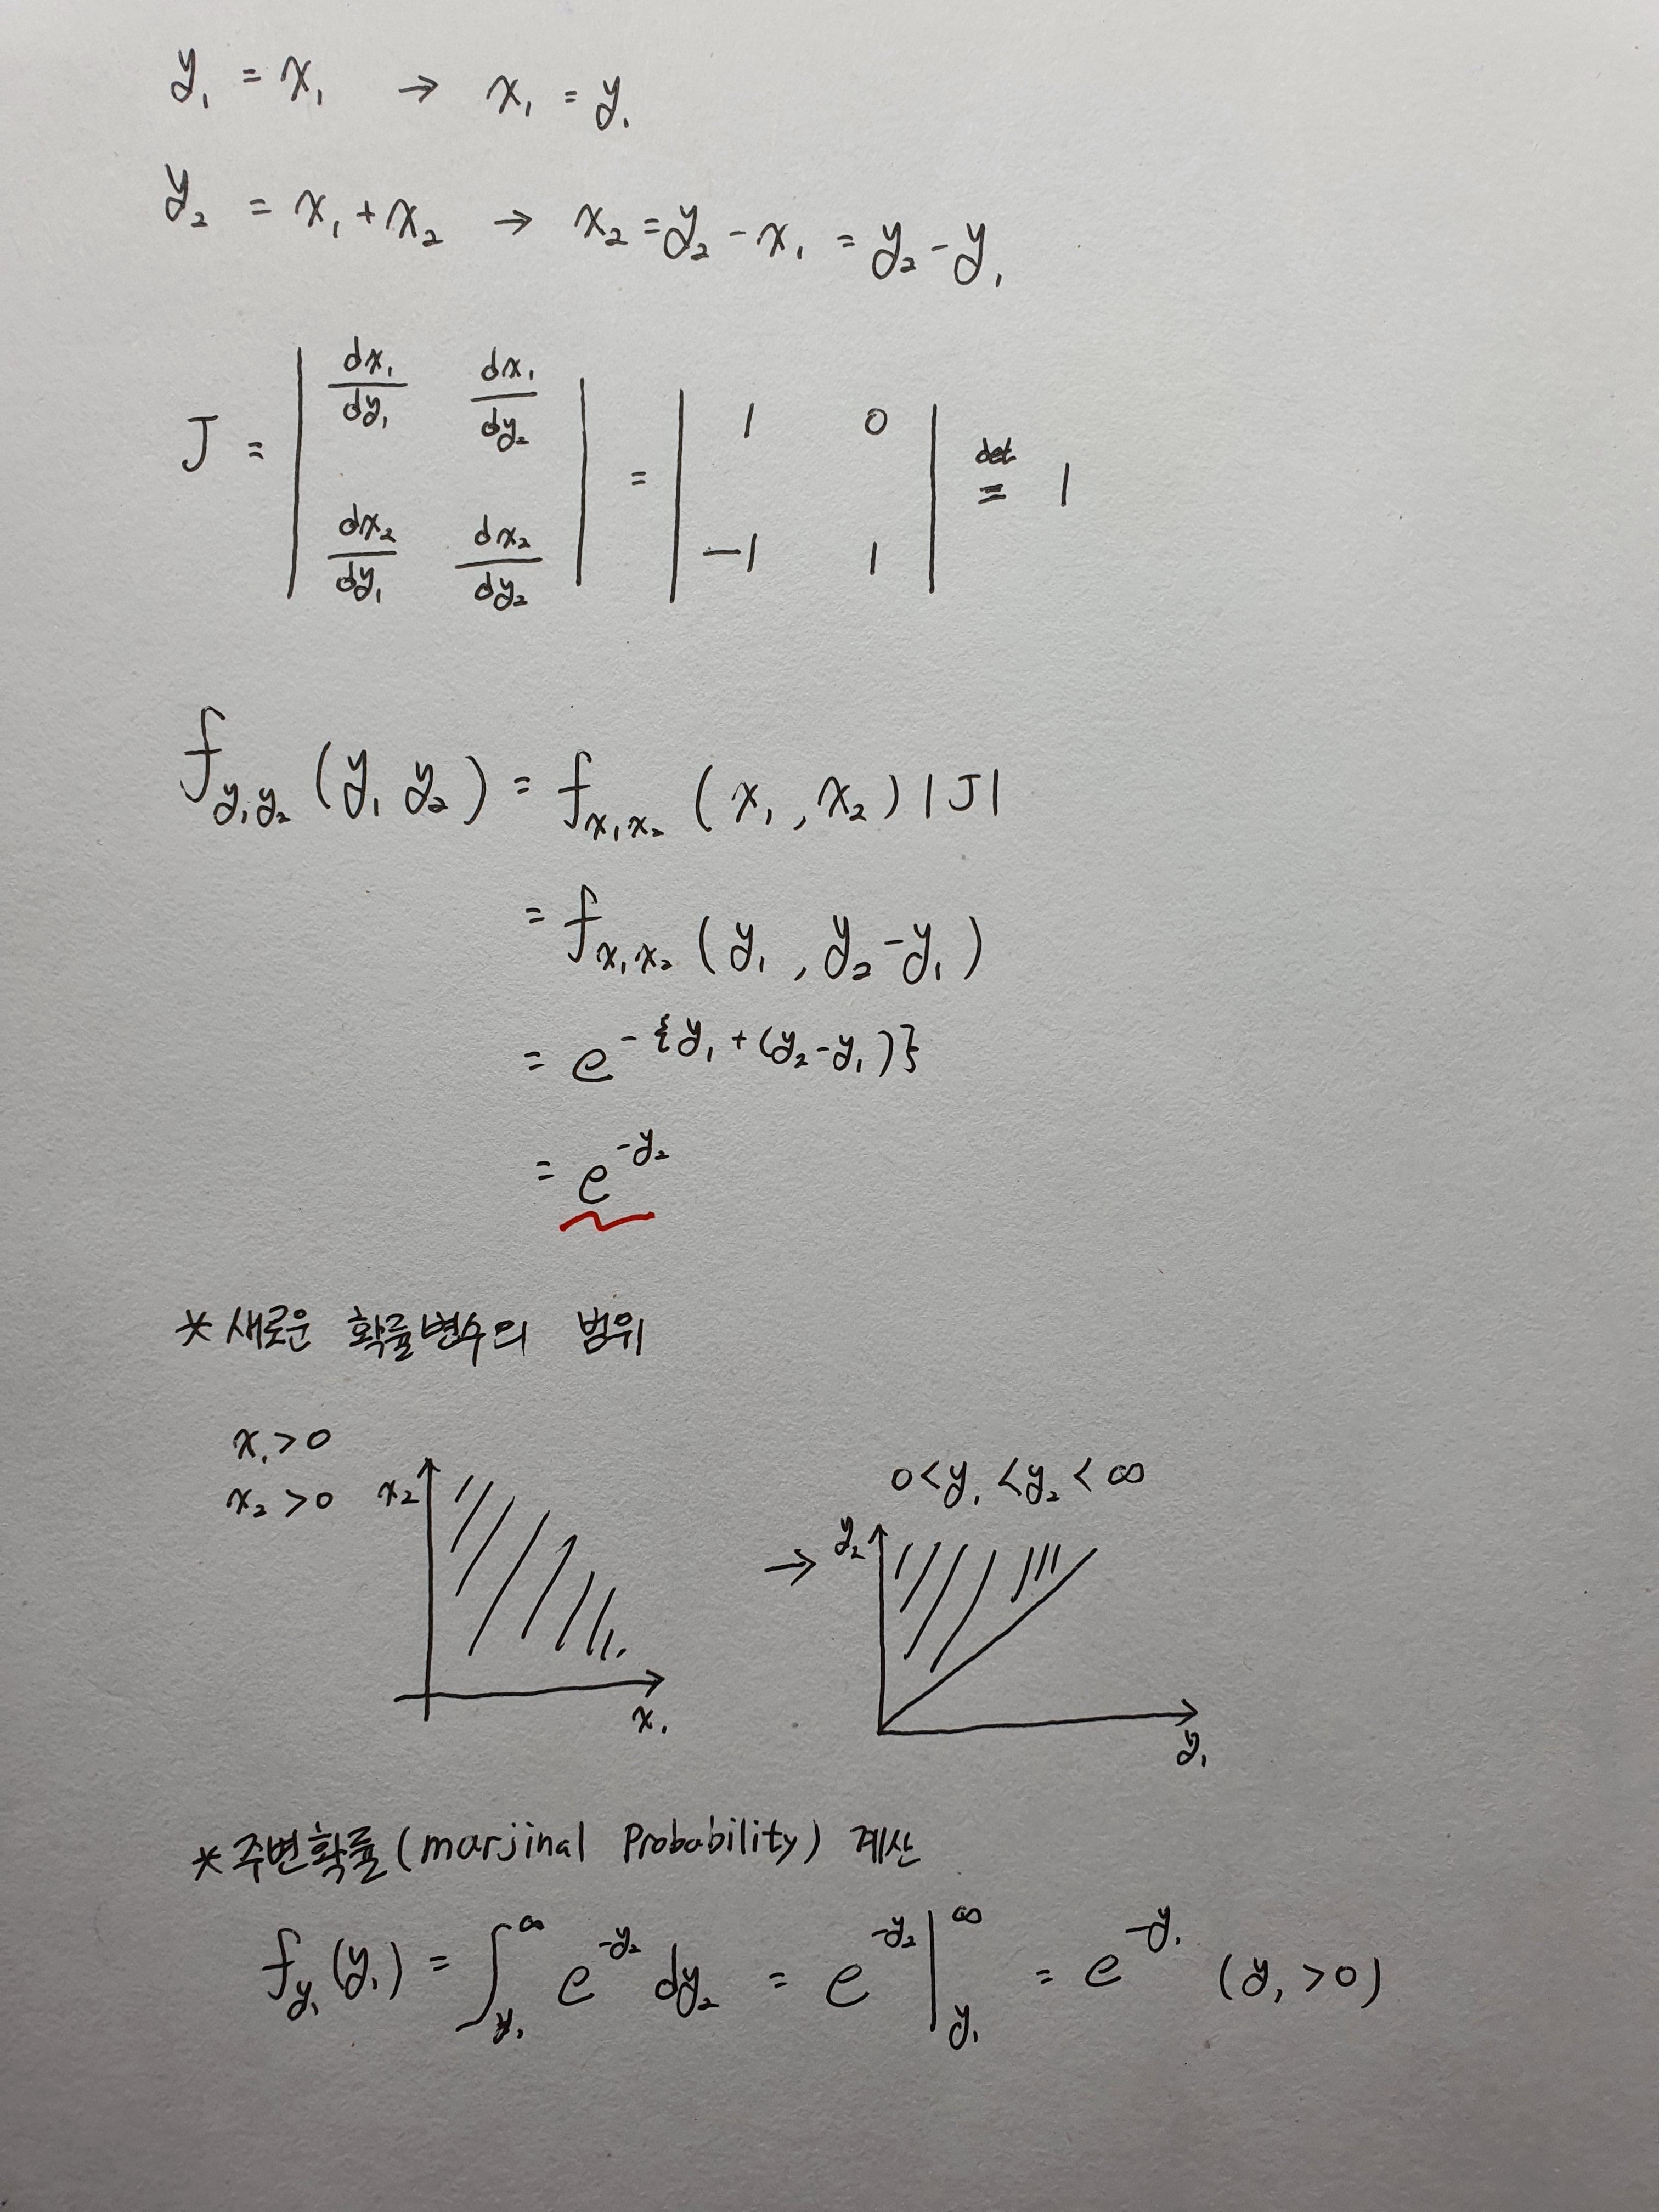 y₁ = x₁ → x₁ = y₁
y₂ = x₁ + x₂ → x₂ = y₂ - x₁ = y₂ - y₁
J = | dx₁/dy₁ dx₁/dy₂ | = | 1 0 | det = 1
| dx₂/dy₁ dx₂/dy₂ | | -1 1 |
f_{y₁y₂} (y₁ y₂) = f_{x₁x₂} (x₁, x₂) |J|
= f_{x₁x₂} (y₁, y₂-y₁)
= e^{-{y₁ + (y₂-y₁)}}
= e^{-y₂}
* 새로운 확률변수의 범위
x₁ > 0
x₂ > 0
x₂
x₁
→
0 < y₁ < y₂ < ∞
y₂
y₁
* 주변확률 (marjinal Probability) 계산
f_{y₁}(y₁) = ∫_{y₁}^{∞} e^{-y₂} dy₂ = e^{-y₂} |_{y₁}^{∞} = e^{-y₁} (y₁ > 0)